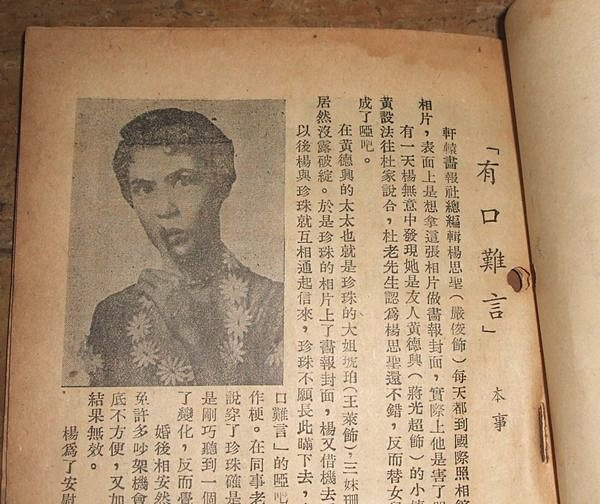 「有口難言」
本事
軒轅畫報社總編輯楊思聖(嚴俊飾)每天都到國際照相
相片，表面上是想拿這張相片做畫報封面，實際上他是害了
有一天楊無意中發現她是友人黃德興(蔣光超飾)的小
黃設法往杜家說合，杜老先生認爲楊思聖還不錯，反而替女
成了啞吧。
在黃德興的太太也就是珍珠的大姐琥珀(王萊飾)，三妹珊
居然沒露破綻。於是珍珠的相片上了畫報封面，楊又借機去
以後楊與珍珠就互相通起信來，珍珠不願長此瞞下去，
口難言」的啞吧
作梗。在同事老
說穿了珍珠確是
是剛巧聽到一個
了變化，反而覺
婚後相安然
免許多吵架機會
底不方便，又加
結果無效。
楊爲了安慰